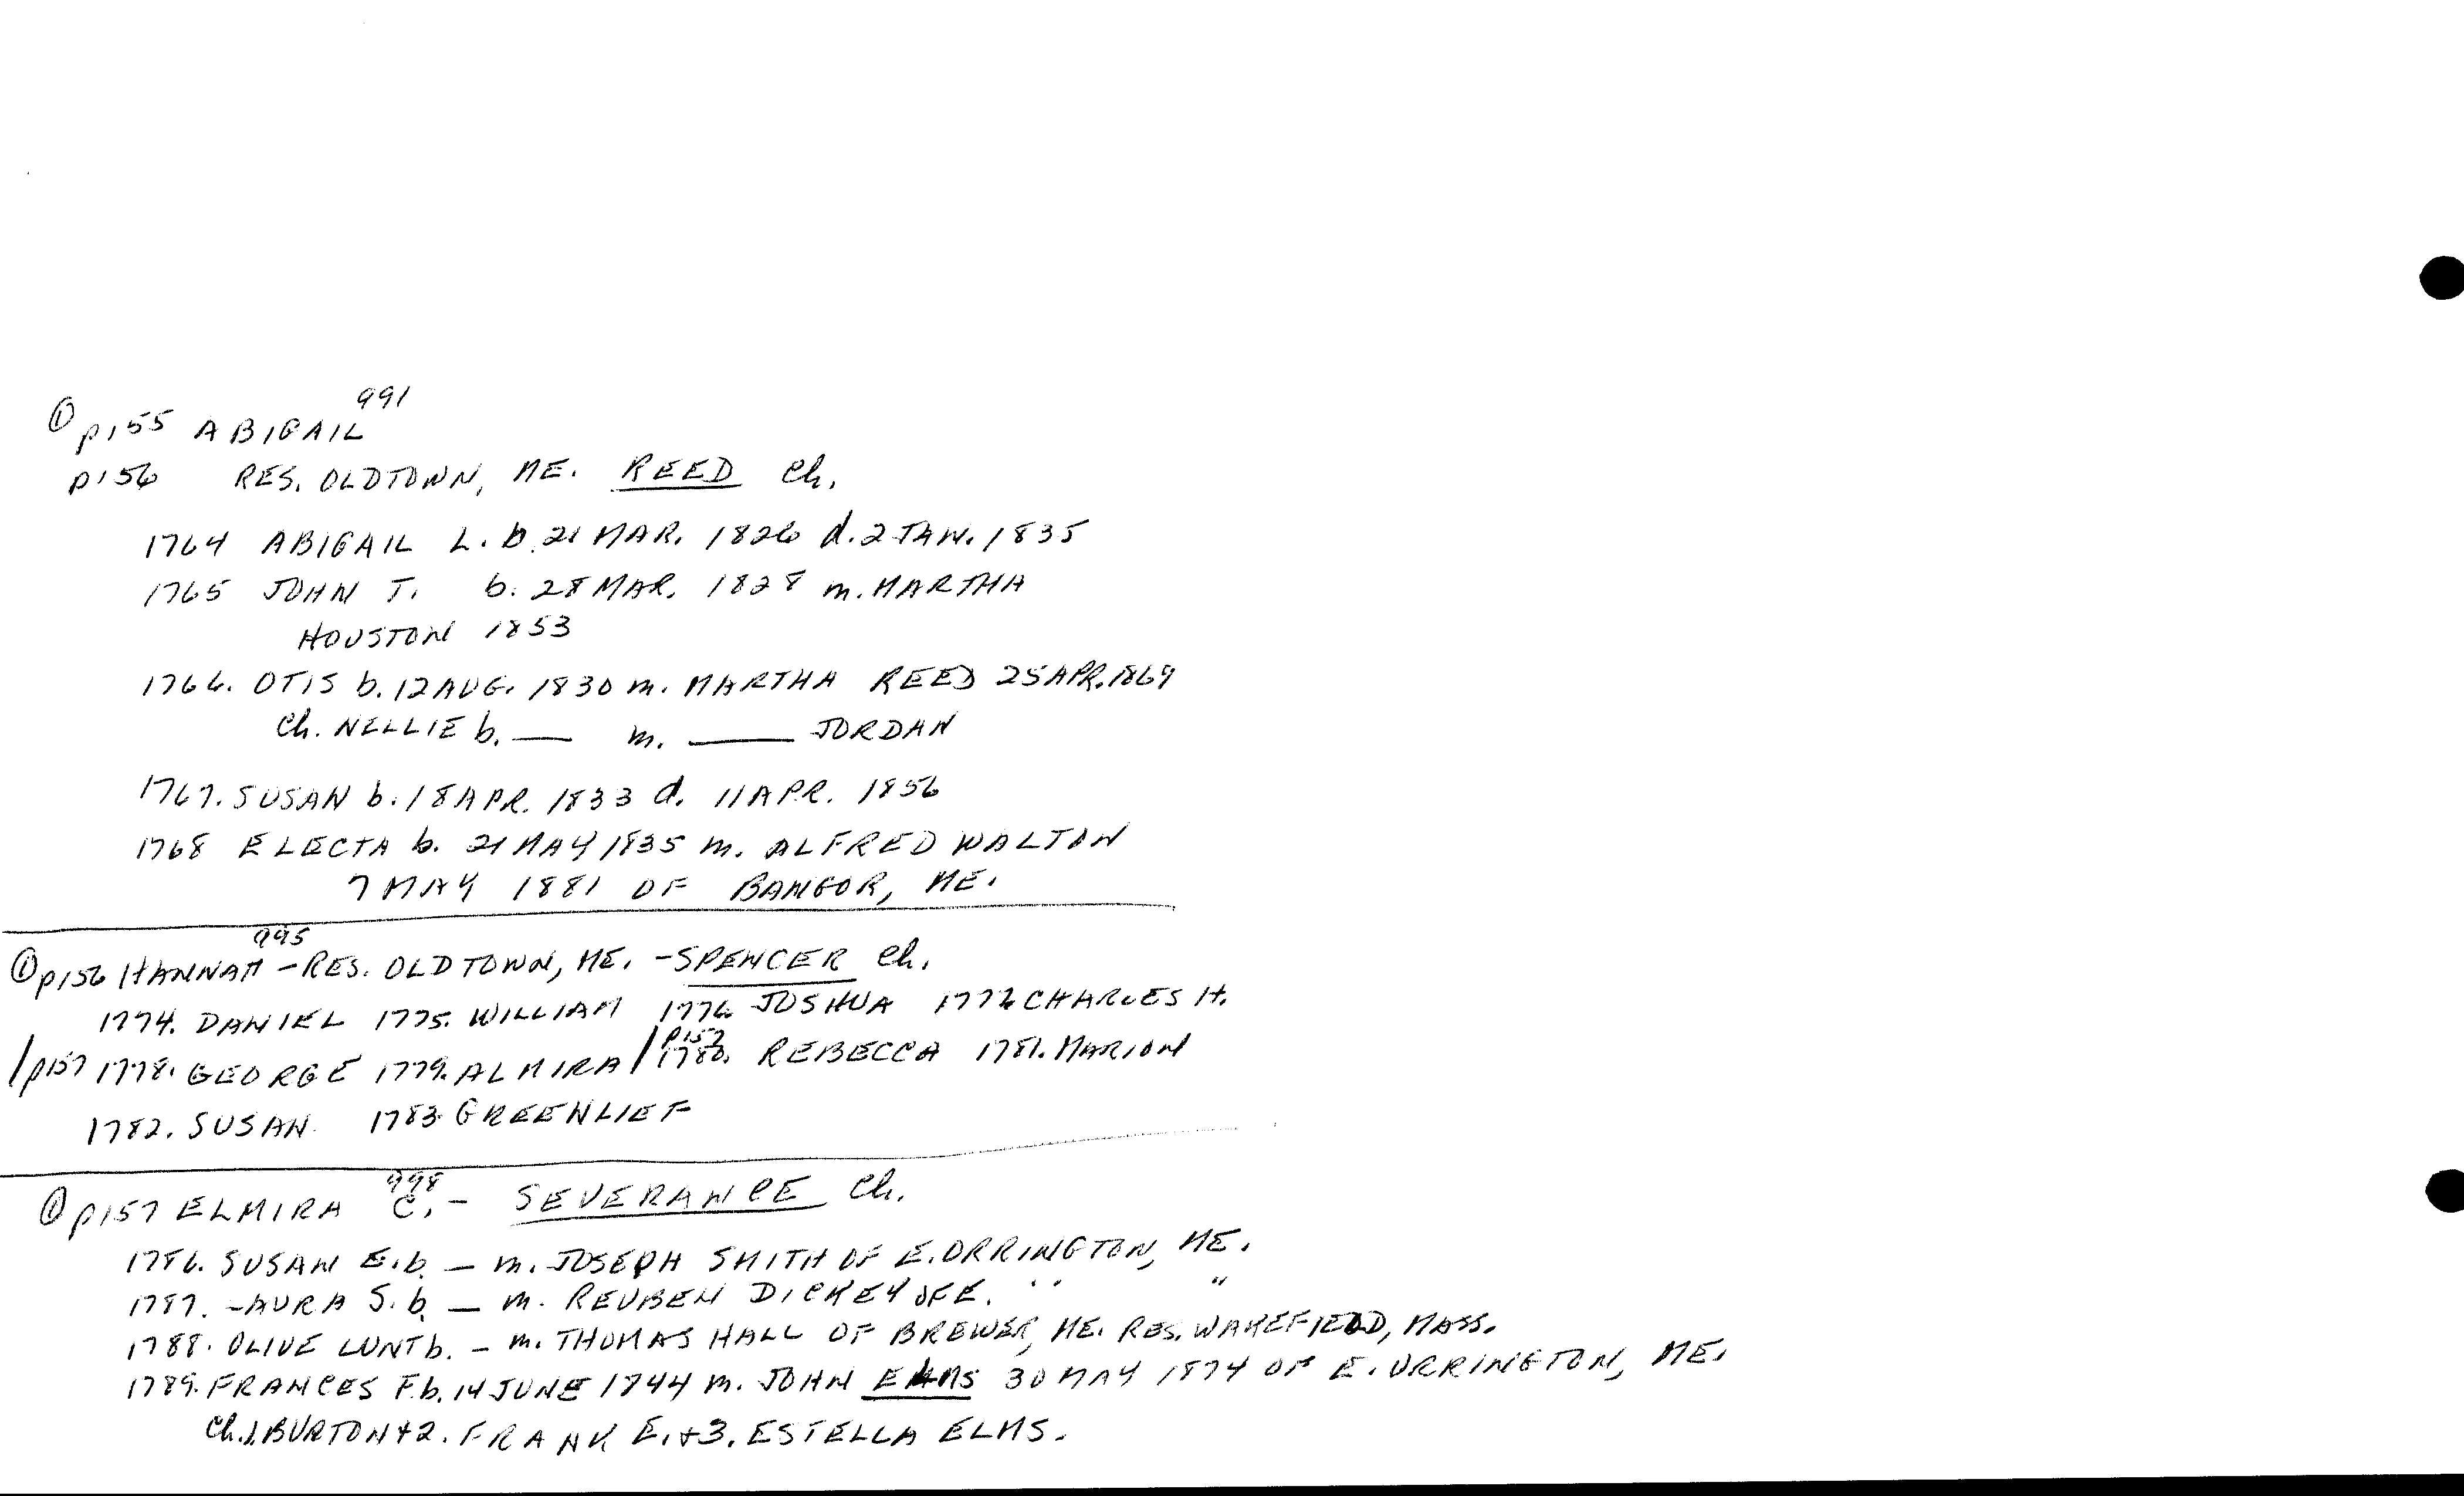 ① p155 ABIGAIL 991
p156 RES. OLDTOWN, ME. REED Ch.
1764 ABIGAIL L. b. 21 MAR. 1826 d. 2 JAN. 1835
1765 JOHN T. b. 28 MAR. 1828 m. MARTHA
HOUSTON 1853
1766. OTIS b. 12 AUG. 1830 m. MARTHA REED 25 APR. 1869
Ch. NELLIE b. — m. — JORDAN
1767. SUSAN b. 18 APR. 1833 d. 11 APR. 1856
1768 ELECTA b. 21 MAY 1835 m. ALFRED WALTON
7 MAY 1881 OF BANGOR, ME.
① p156 HANNAH 995 - RES. OLDTOWN, ME. - SPENCER Ch.
1774. DANIEL 1775. WILLIAM 1776 JOSHUA 1777 CHARLES H.
/p157 1778. GEORGE 1779. ALMIRA / p157 1780. REBECCA 1781. MARION
1782. SUSAN. 1783 GREENLIEF
① p157 ELMIRA C. 998 - SEVERANCE Ch.
1786. SUSAN E. b. — m. JOSEPH SMITH OF E. ORRINGTON, ME.
1787. -AURA S. b. — m. REUBEN DICKEY OF E. " "
1788. OLIVE LUNT b. — m. THOMAS HALL OF BREWER, ME. RES. WAKEFIELD, MASS.
1789. FRANCES F. b. 14 JUNE 1844 m. JOHN ELMS 30 MAY 1874 OF E. ORRINGTON, ME.
Ch. 1. BURTON + 2. FRANK E. + 3. ESTELLA ELMS.